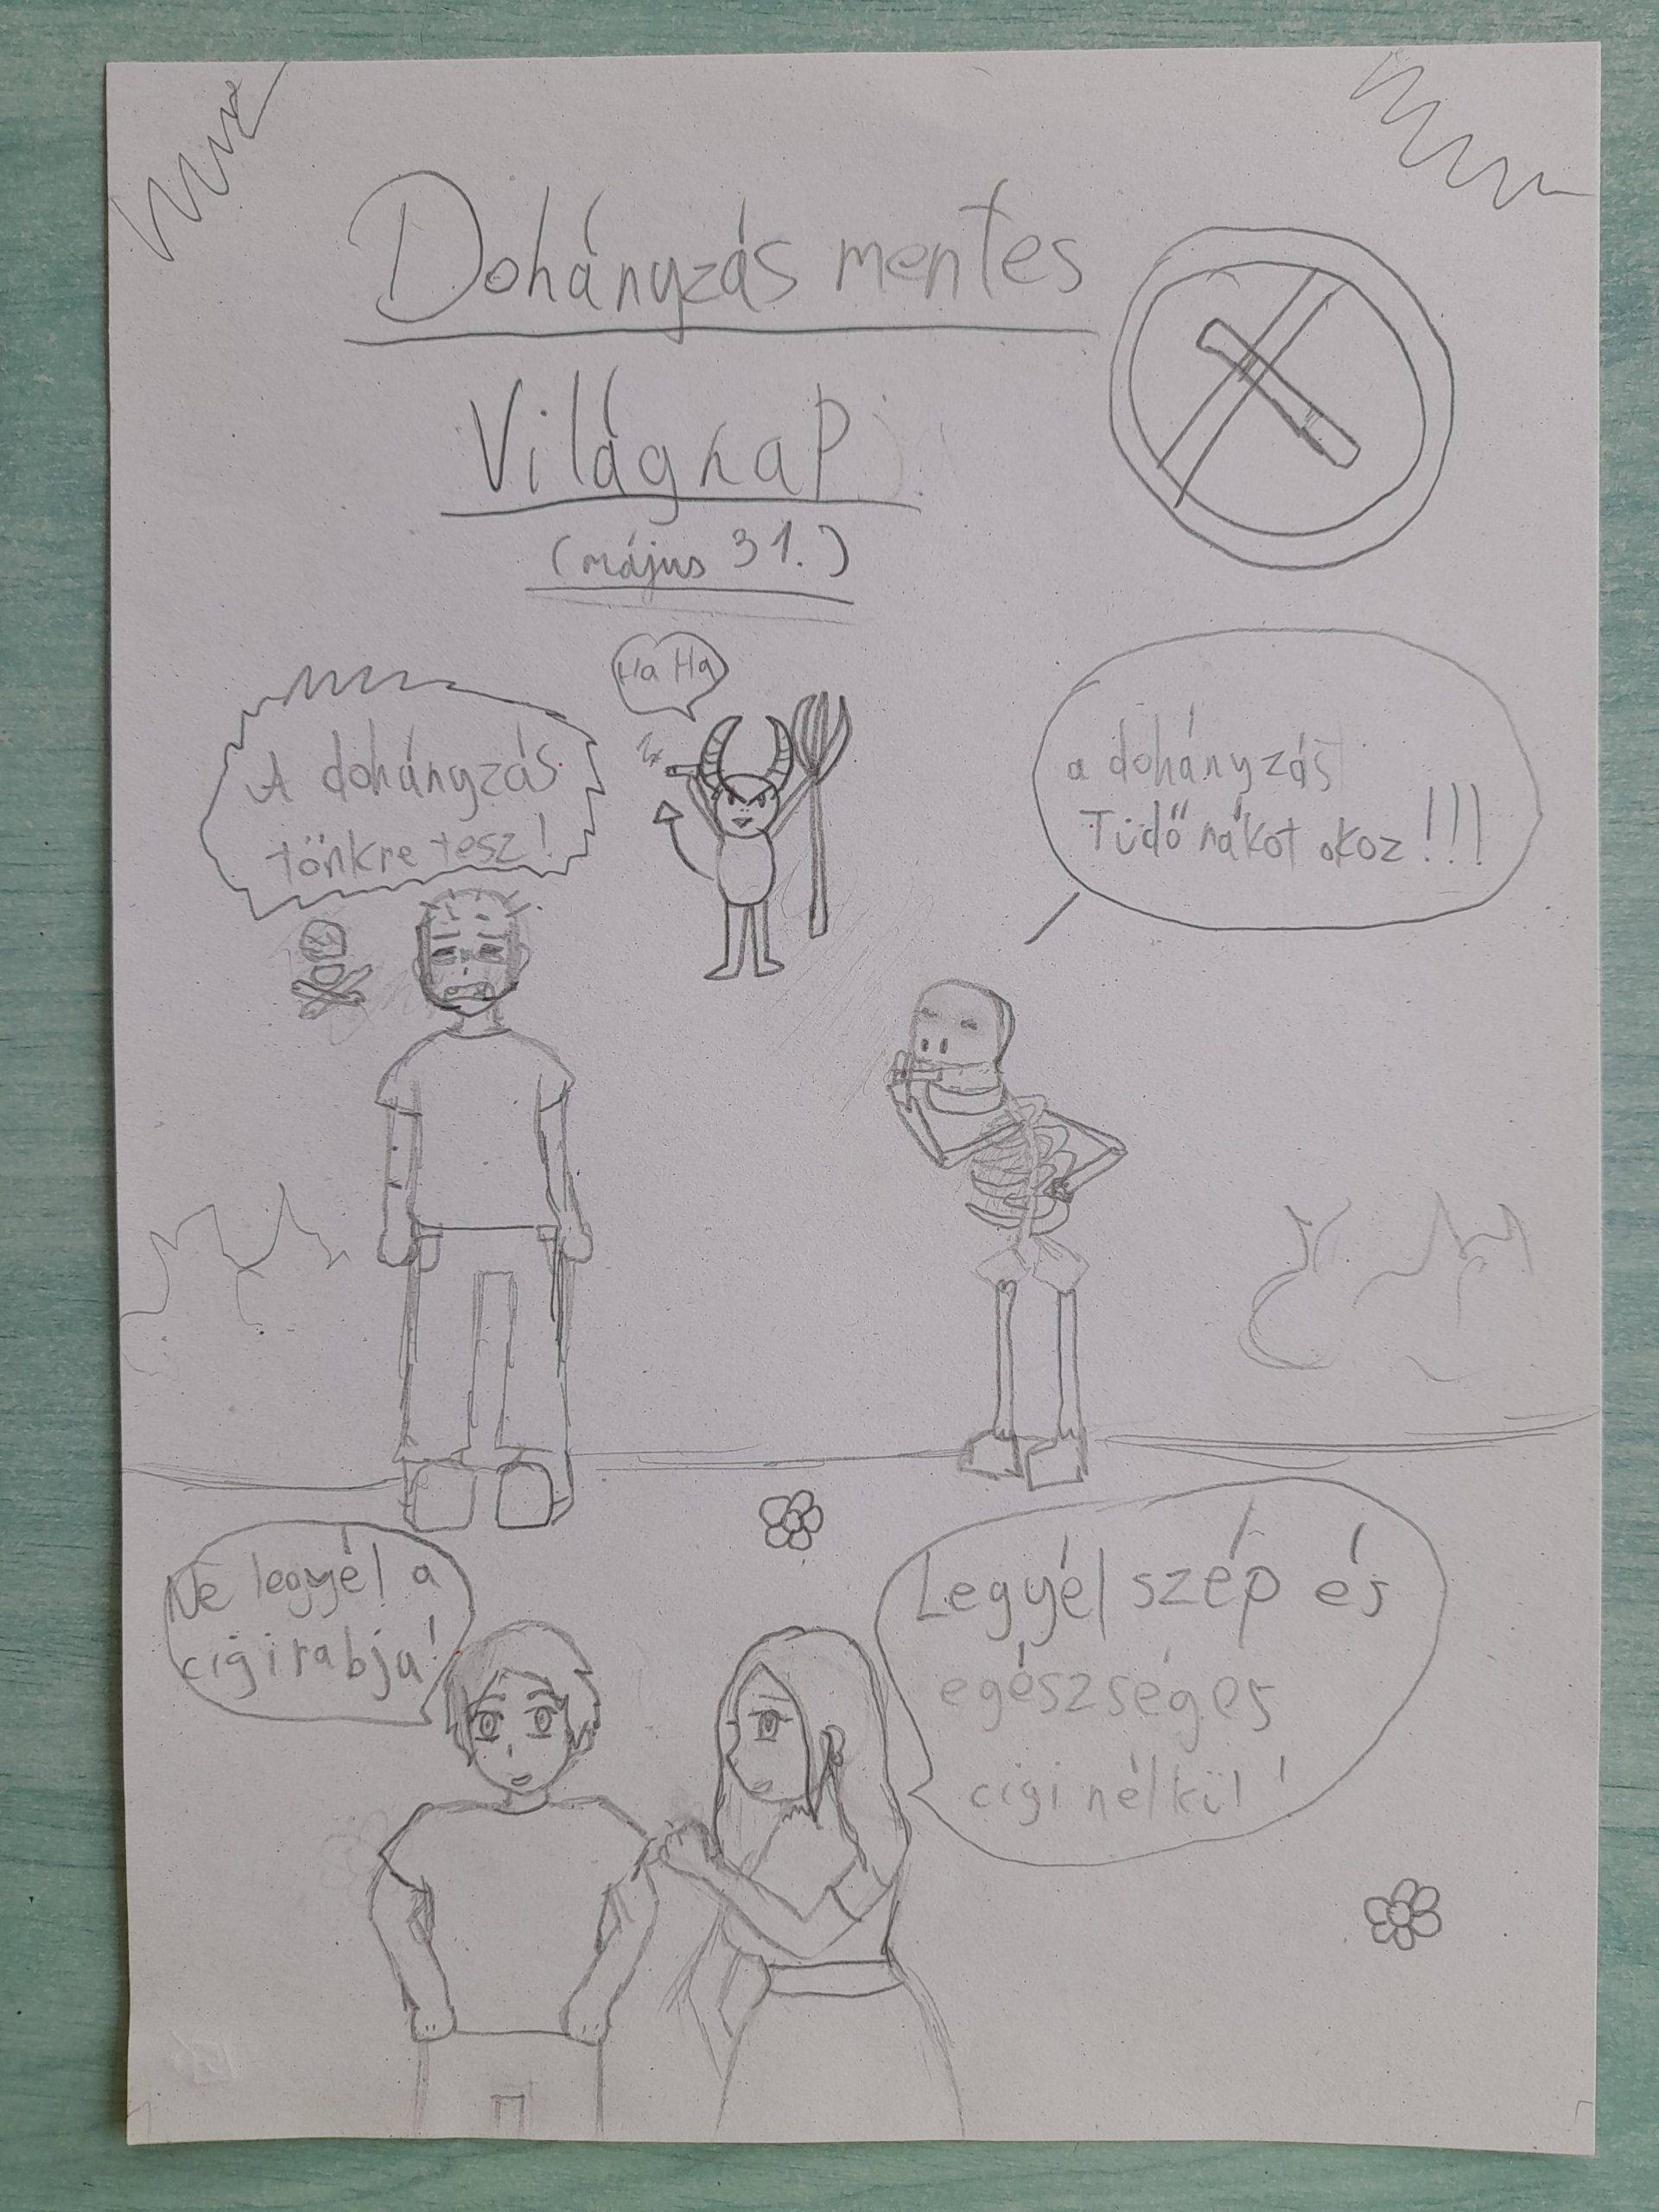 Dohányzás mentes
Világnap
(május 31.)
Ha Ha
A dohányzás
tönkre tesz!
a dohányzás
Tüdő rákot okoz!!!
Ne legyél a
cigi rabja!
Legyél szép és
egészséges
cigi nélkül!